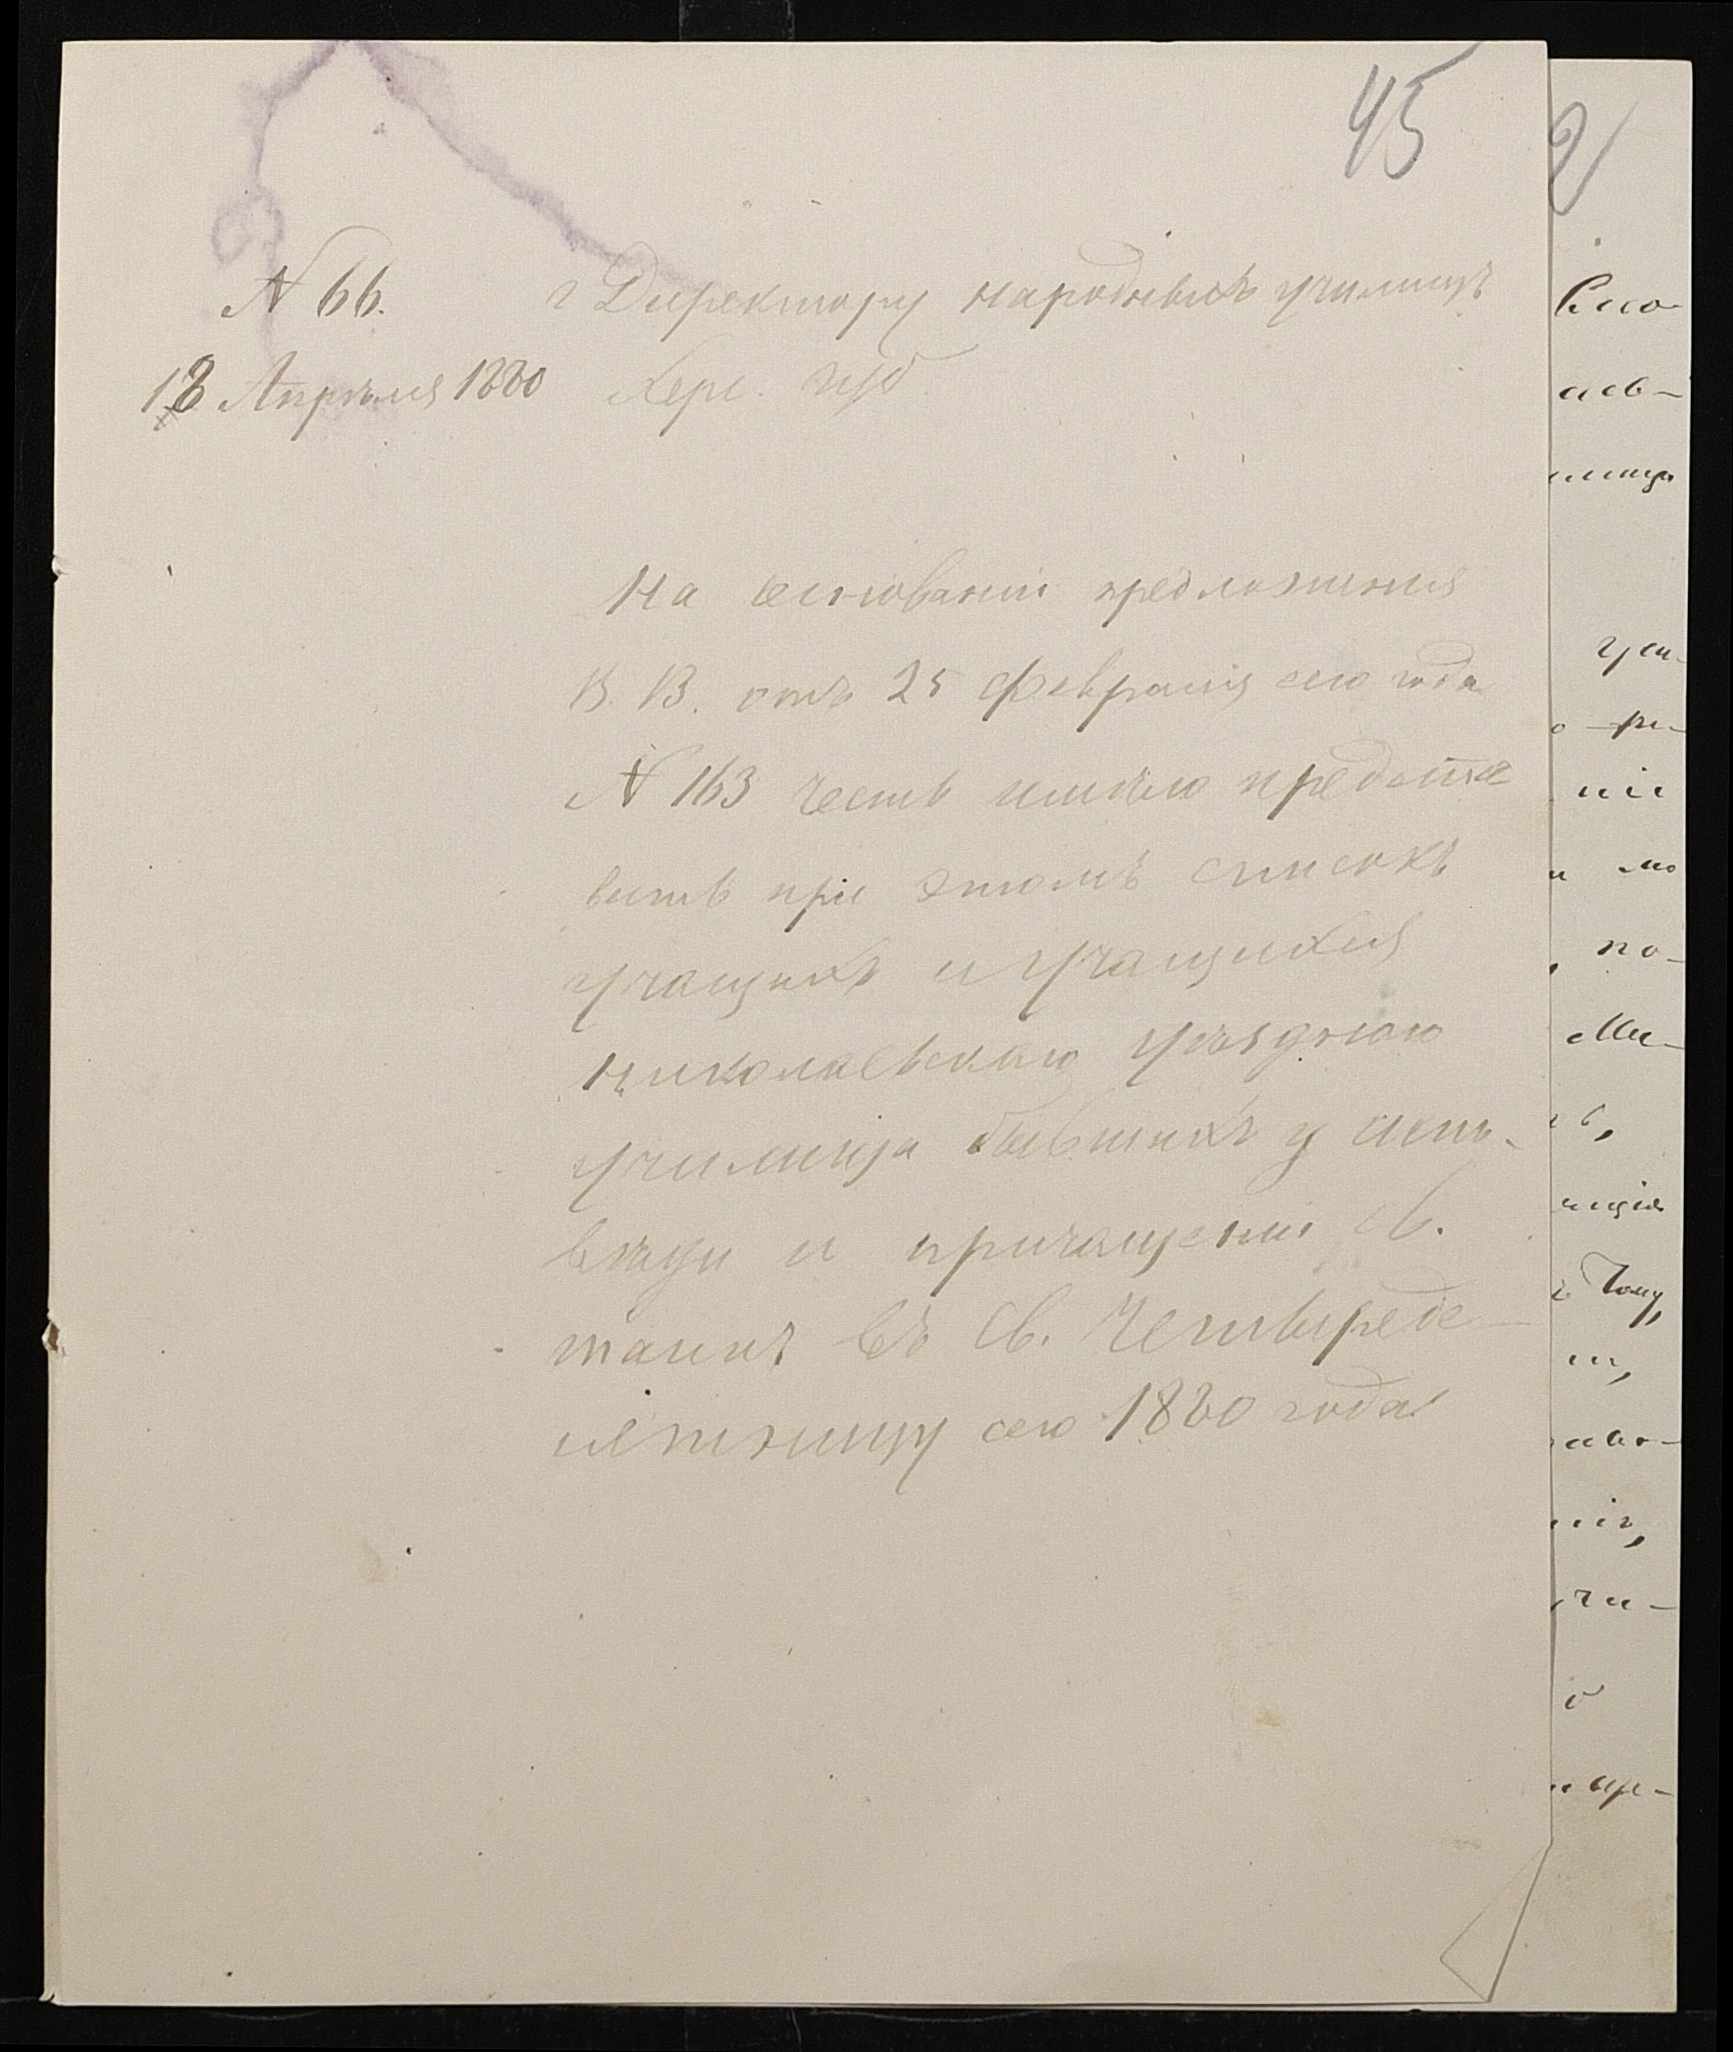 45
N 66.
г Директору народныхъ училищъ
18 Апрѣля 1880
Херс. губ.
На основаніи предложенія
В. В. отъ 25 Февраля сего года
N 163 честь имѣю предста
вить при этомъ списокъ
учащихъ и учащихся
Николаевскаго уѣзднаго
училища бывшихъ у испо-
вѣди и причащенія Св.
таинъ въ Св. Четыреде-
сятницу сего 1880 года
2
гр
ніе
по-
Ми-
Тому,